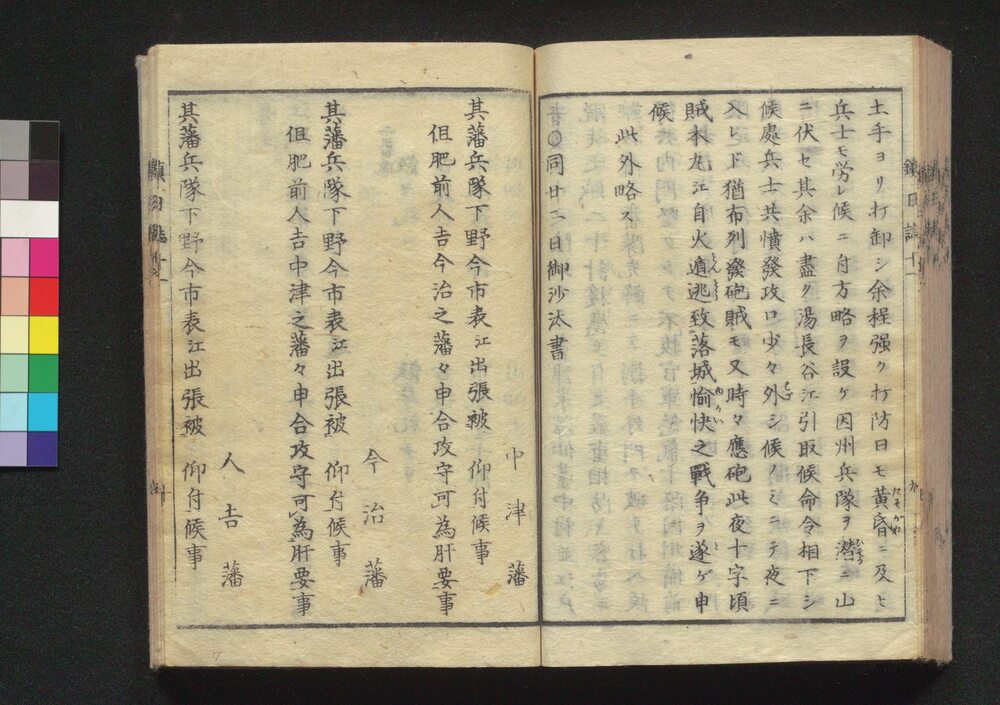 土手ヨリ打卸シ余程强ク打防日モ黄昏ニ及ヒ
兵士モ労レ候ニ付方略ヲ設ケ因州兵隊ヲ潜ニ山
ニ伏セ其余ハ盡ク湯長谷江引取候命令相下シ
候處兵士共憤發攻口少々外シ候ノミニテ夜ニ
入レドモ猶布列發砲賊モ又時々應砲此夜十字頃
賊本丸江自火遁逃致落城愉快之戰争ヲ遂ゲ申
候
此外略ス
○同廿二日御沙汰書
中津藩
其藩兵隊下野今市表江出張被 仰付候事
但肥前人吉今治之藩々申合攻守可為肝要事
今治藩
其藩兵隊下野今市表江出張被 仰付候事
但肥前人吉中津之藩々申合攻守可為肝要事
人吉藩
其藩兵隊下野今市表江出張被 仰付候事